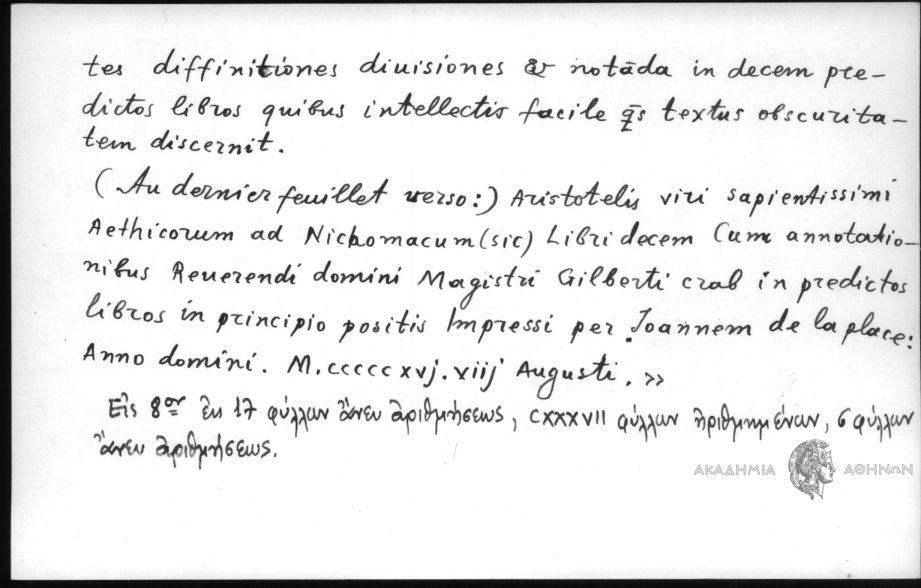 tes diffinitiones diuisiones & notāda in decem pre-
dictos libros quibus intellectis facile q̄s textus obscurita-
tem discernit.
(Au dernier feuillet verso:) Aristotelis viri sapientissimi
Aethicorum ad Nichomacum (sic) Libri decem Cum annotatio-
nibus Reuerendi domini Magistri Gilberti crab in predictos
libros in principio positis Impressi per Joannem de la place:
Anno domini. M.ccccc xvj. xiij Augusti. »
Εἰς 8ον ἐκ 17 φύλλων ἄνευ ἀριθμήσεως, CXXXVII φύλλων ἠριθμημένων, 6 φύλλων
ἄνευ ἀριθμήσεως.
ΑΚΑΔΗΜΙΑ ΑΘΗΝΩΝ